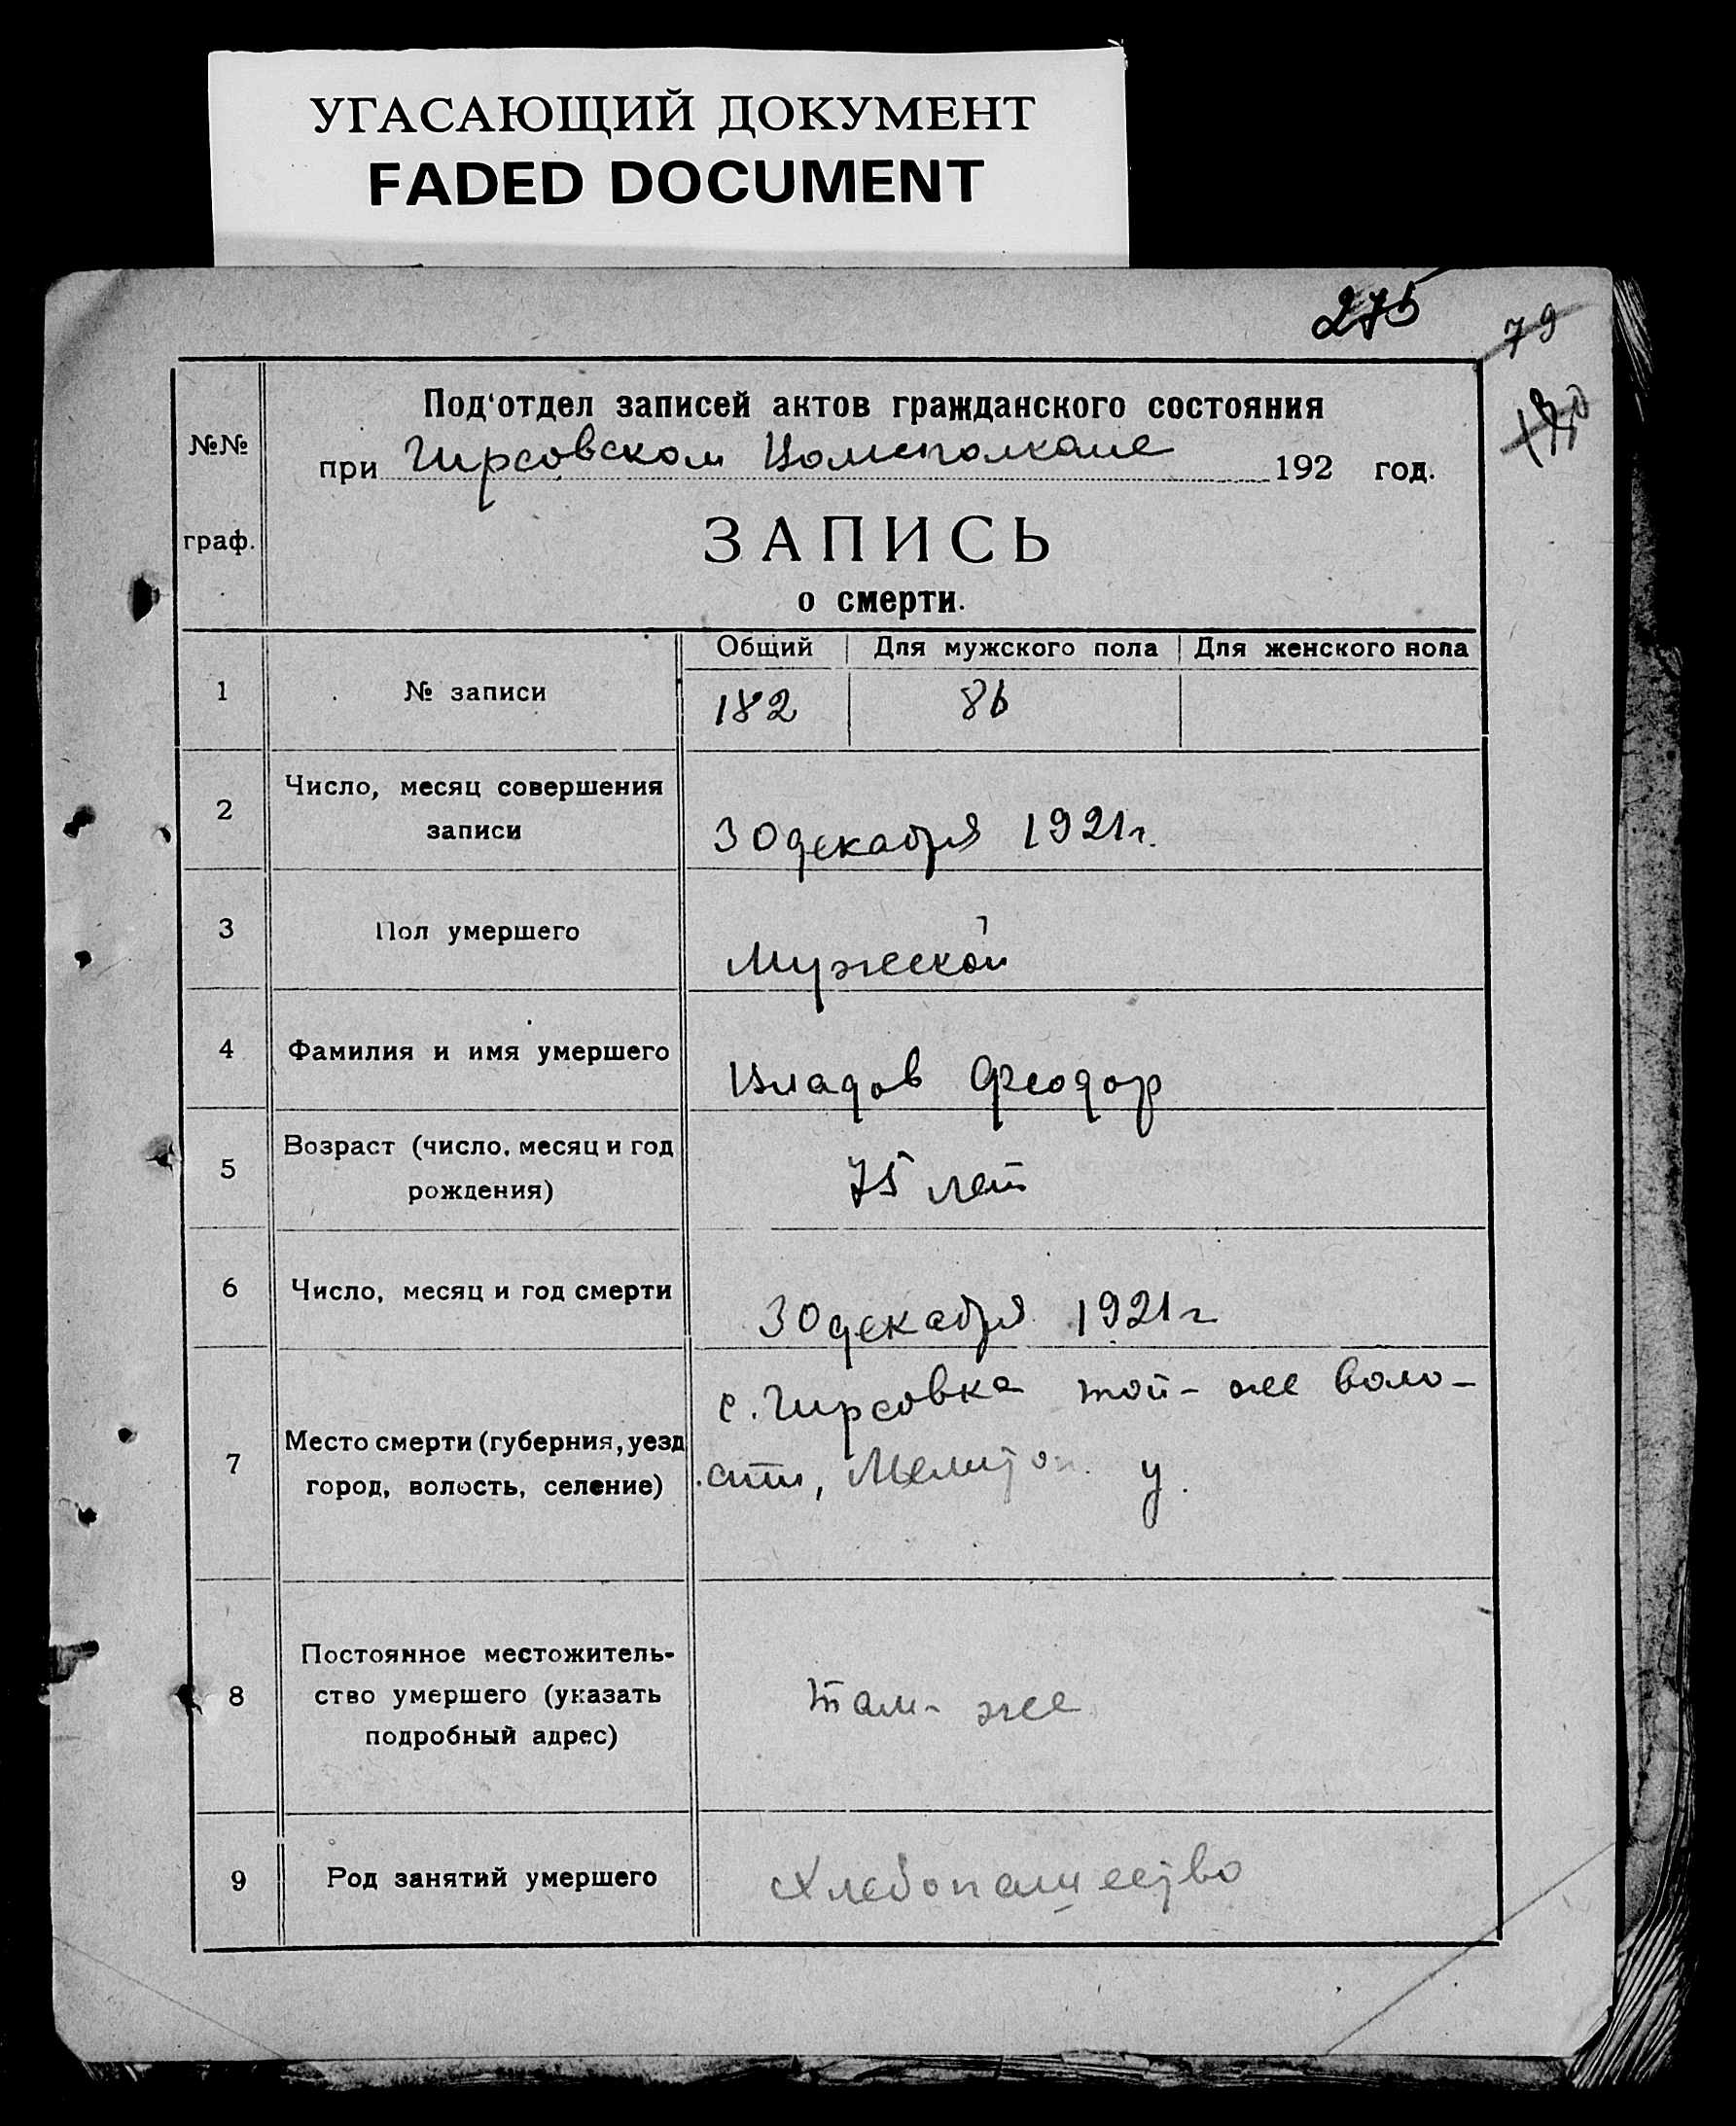 УГАСАЮЩИЙ ДОКУМЕНТ
FADED DOCUMENT
275
79
№№
граф.
Под'отдел записей актов гражданского состояния
при Гирсовском Волисполкоме 192 год.
ЗАПИСЬ
о смерти.
Общий Для мужского пола Для женского пола
1 № записи 182 86
2 Число, месяц совершения
записи
30 декабря 1921 г.
3 Пол умершего Мужеской
4 Фамилия и имя умершего Владов Феодор
5 Возраст (число, месяц и год
рождения)
75 лет
6 Число, месяц и год смерти 30 декабря 1921 г
7 Место смерти (губерния, уезд
город, волость, селение)
с. Гирсовка той-же воло-
сти, Мелитоп. у.
8 Постоянное местожитель-
ство умершего (указать
подробный адрес)
Там-же
9 Род занятий умершего Хлебопашество